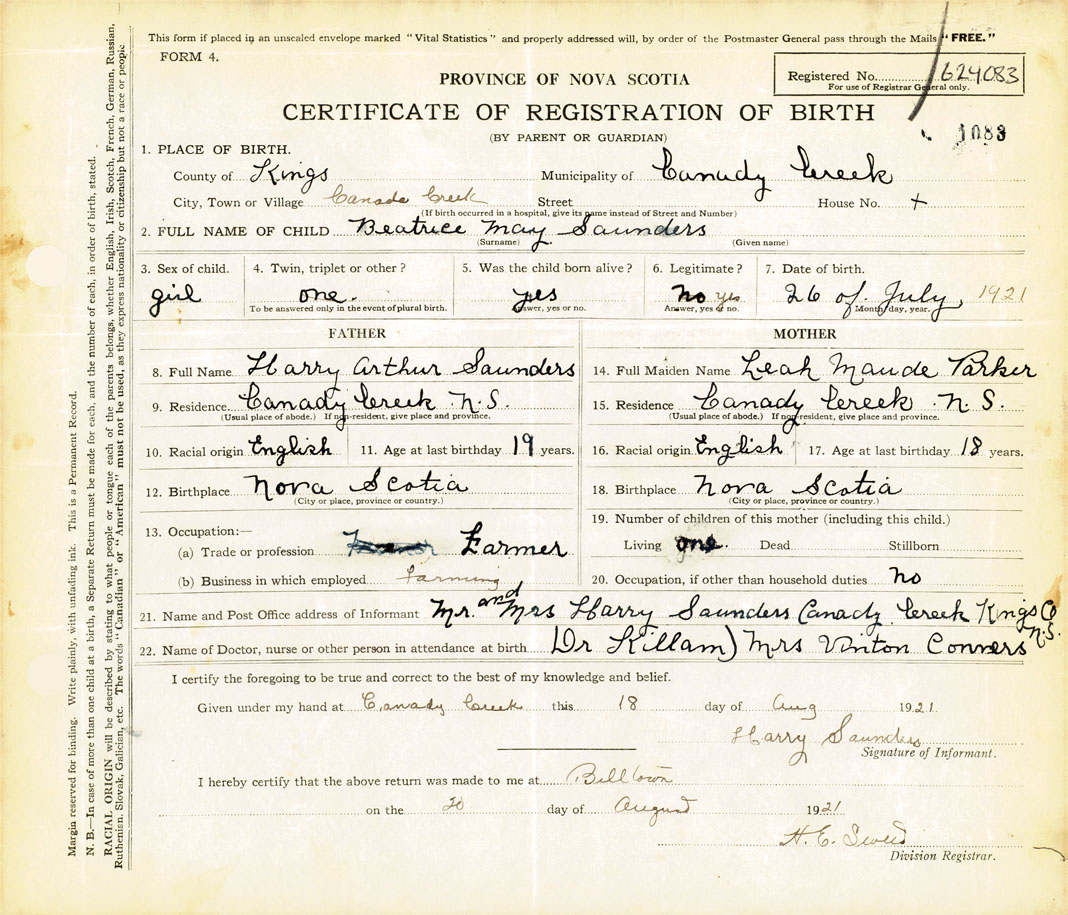 This form if placed in an unsealed envelope marked "Vital Statistics" and properly addressed will, by order of the Postmaster General pass through the Mails "FREE."
FORM 4.
PROVINCE OF NOVA SCOTIA
Registered No. 624083
For use of Registrar General only.
CERTIFICATE OF REGISTRATION OF BIRTH
(BY PARENT OR GUARDIAN)
1083
1. PLACE OF BIRTH.
County of Kings Municipality of Canady Creek
City, Town or Village Canada Creek Street House No. +
(If birth occurred in a hospital, give its name instead of Street and Number)
2. FULL NAME OF CHILD Beatrice May Saunders
(Surname) (Given name)
3. Sex of child. 4. Twin, triplet or other? 5. Was the child born alive? 6. Legitimate? 7. Date of birth.
girl one. yes no yes 26 of July, 1921
To be answered only in the event of plural birth. Answer, yes or no. Answer, yes or no. Month, day, year.
FATHER MOTHER
8. Full Name Harry Arthur Saunders 14. Full Maiden Name Leah Maude Parker
9. Residence Canady Creek N.S 15. Residence Canady Creek N.S.
(Usual place of abode.) If non-resident, give place and province. (Usual place of abode.) If non-resident, give place and province.
10. Racial origin English 11. Age at last birthday 19 years. 16. Racial origin English 17. Age at last birthday 18 years.
12. Birthplace Nova Scotia 18. Birthplace Nova Scotia
(City or place, province or country.) (City or place, province or country.)
13. Occupation:— 19. Number of children of this mother (including this child.)
(a) Trade or profession Farmer Living one. Dead Stillborn
(b) Business in which employed farming 20. Occupation, if other than household duties no
21. Name and Post Office address of Informant Mr. and Mrs Harry Saunders Canady Creek Kings Co N.S.
22. Name of Doctor, nurse or other person in attendance at birth Dr Killam) Mrs Vinton Conners
I certify the foregoing to be true and correct to the best of my knowledge and belief.
Given under my hand at Canady Creek this 18 day of Aug 1921.
Harry Saunders
Signature of Informant.
I hereby certify that the above return was made to me at Billtown
on the 20 day of August 1921
H. E.
Division Registrar.
Margin reserved for binding. Write plainly, with unfading ink. This is a Permanent Record.
N. B.—In case of more than one child at a birth, a Separate Return must be made for each, and the number of each, in order of birth, stated.
RACIAL ORIGIN will be described by stating to what people or tongue each of the parents belongs, whether English, Irish, Scotch, French, German, Russian,
Ruthenian, Slovak, Galician, etc. The words "Canadian" or "American" must not be used, as they express nationality or citizenship but not a race or people